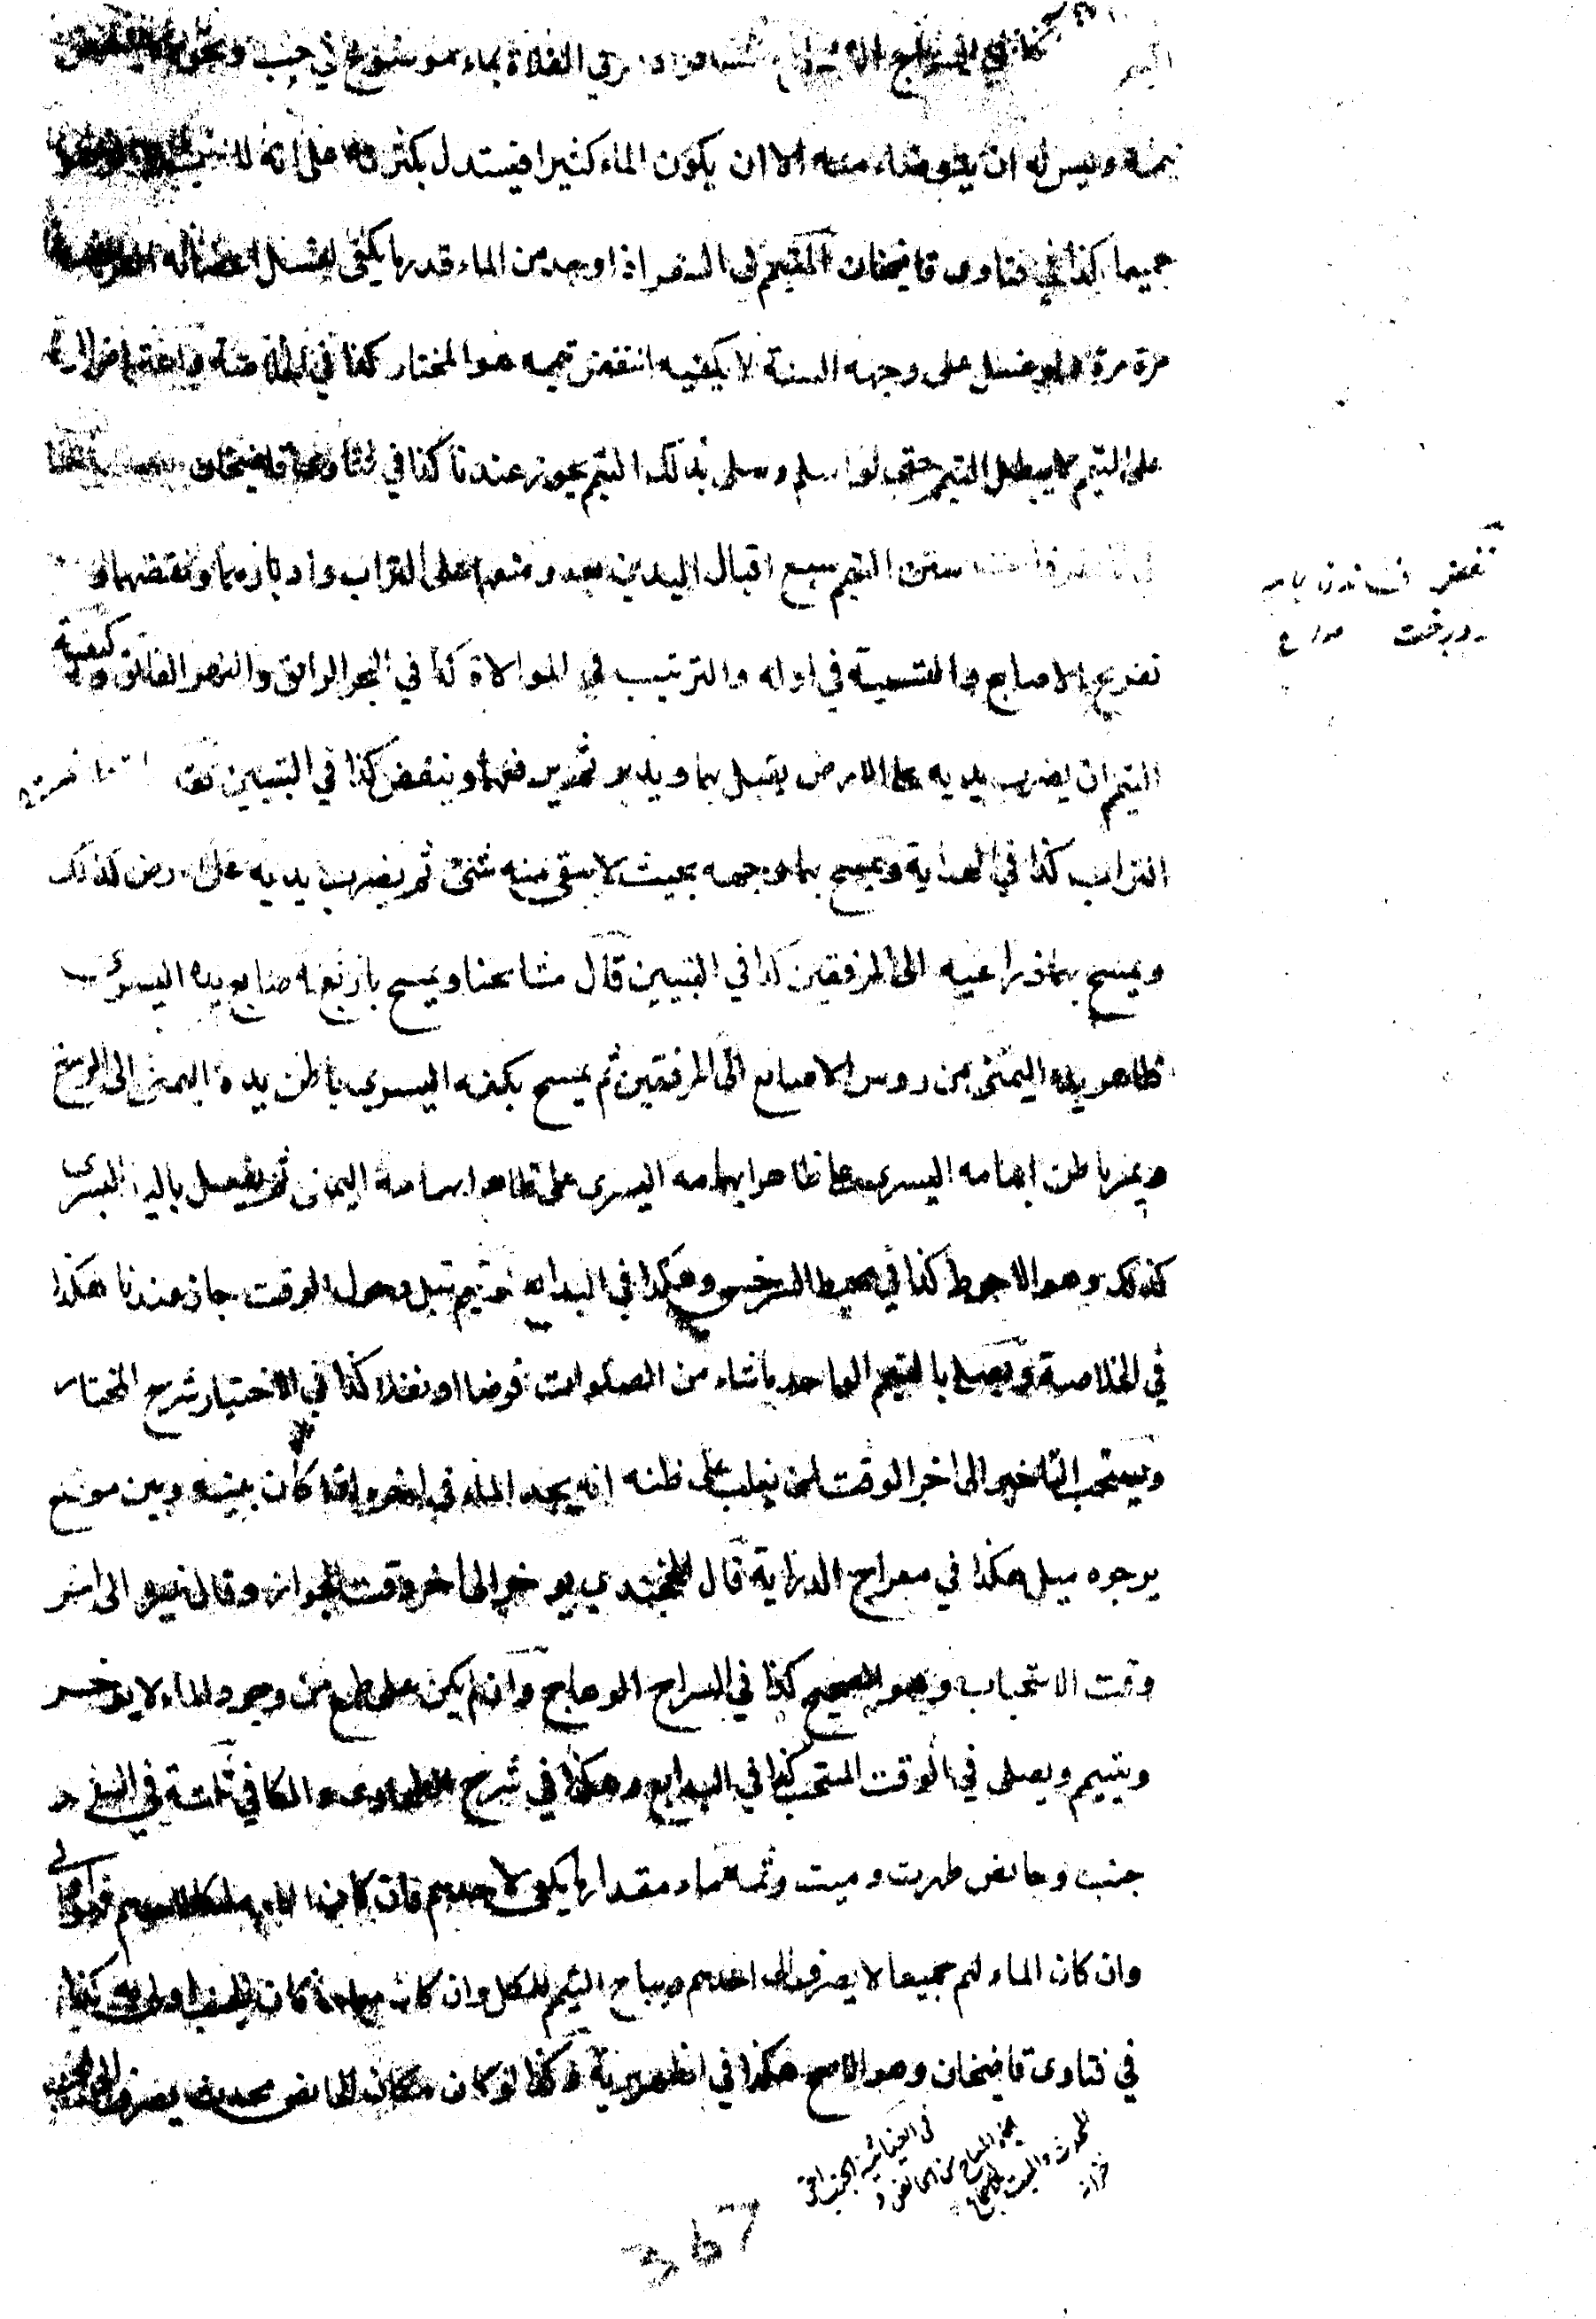 كذا في السراج مسافر في الفلاة بماء موضوع في جب ونحوه
تيممه وليس له ان يتوضأ منه الا ان يكون الماء كثيرا فيستدل بكثرته على انه
جميعا كذا في فتاوى قاضيخان المتيم في السفر اذا وجد من الماء قدر ما يكفى لغسل اعضائه
مرة مرة ولو غسل على وجه السنة لا يكفيه انتقض تيممه هو المختار كذا في الخلاصة
على التيمم لا يبطل التيمم حتى لو اسلم وصلى بذلك التيمم يجوز عندنا كذا في فتاوى قاضيخان
سنن التيمم سبع اقبال اليدين بعد وضعهما على التراب وادبارهما ونفضهما و
تفريج الاصابع والتسمية في اوله والترتيب في الموالاة كذا في البحر الرائق والنهر الفائق وكيفية
التيمم ان يضرب يديه على الارض يقبل بهما ويدبر ثم يرفعهما وينفض كذا في التبيين
التراب كذا في الهداية ويمسح بهما وجهه بحيث لا يبقى منه شئ ثم يضرب يديه على الارض كذلك
ويمسح بهما ذراعيه الى المرفقين كذا في التبيين قال مشايخنا ويمسح باربع اصابع يده اليسرى
ظاهر يده اليمنى من روس الاصابع الى المرفقين ثم يمسح بكفه اليسرى باطن يده اليمنى الى الرسغ
ويمر باطن ابهامه اليسرى على ظاهر ابهامه اليسرى على ظاهر ابهامه اليمنى ثم يفعل باليد اليسرى
كذلك وهو الاحوط كذا في محيط السرخسي وهكذا في البدايع لو تيمم قبل دخول الوقت جاز عندنا هكذا
في الخلاصة ويصلى بالتيمم الواحد ما شاء من الصلوات فرضا او نفلا كذا في الاختيار شرح المختار
ويستحب التاخير الى اخر الوقت لمن يغلب على ظنه انه يجد الماء في اخره اذا كان بينه وبين موضع
يرجوه ميل هكذا في معراج الدراية قال الخجندي يوخر الى اخر وقت الجواز وقال غيره الى اخر
وقت الاستحباب وهو الصحيح كذا في السراج الوهاج وان لم يكن على طمع من وجود الماء لا يوخر
ويتيمم ويصلى في الوقت المستحب كذا في البدايع وهكذا في شرح الطحاوى والكافي ثلثة في السفر
جنب وحائض طهرت وميت وثمه ماء مقدار ما يكفى لاحدهم فان كان الماء ملكا لاحدهم فهو اولى
وان كان الماء لهم جميعا لا يصرف الى احدهم ويباح التيمم للكل وان كان مباحا كان الجنب اولى به كذا
في فتاوى قاضيخان وهو الاصح هكذا في الظهيرية وكذا لو كان مكان الحائض محدث يصرف الى الجنب
367